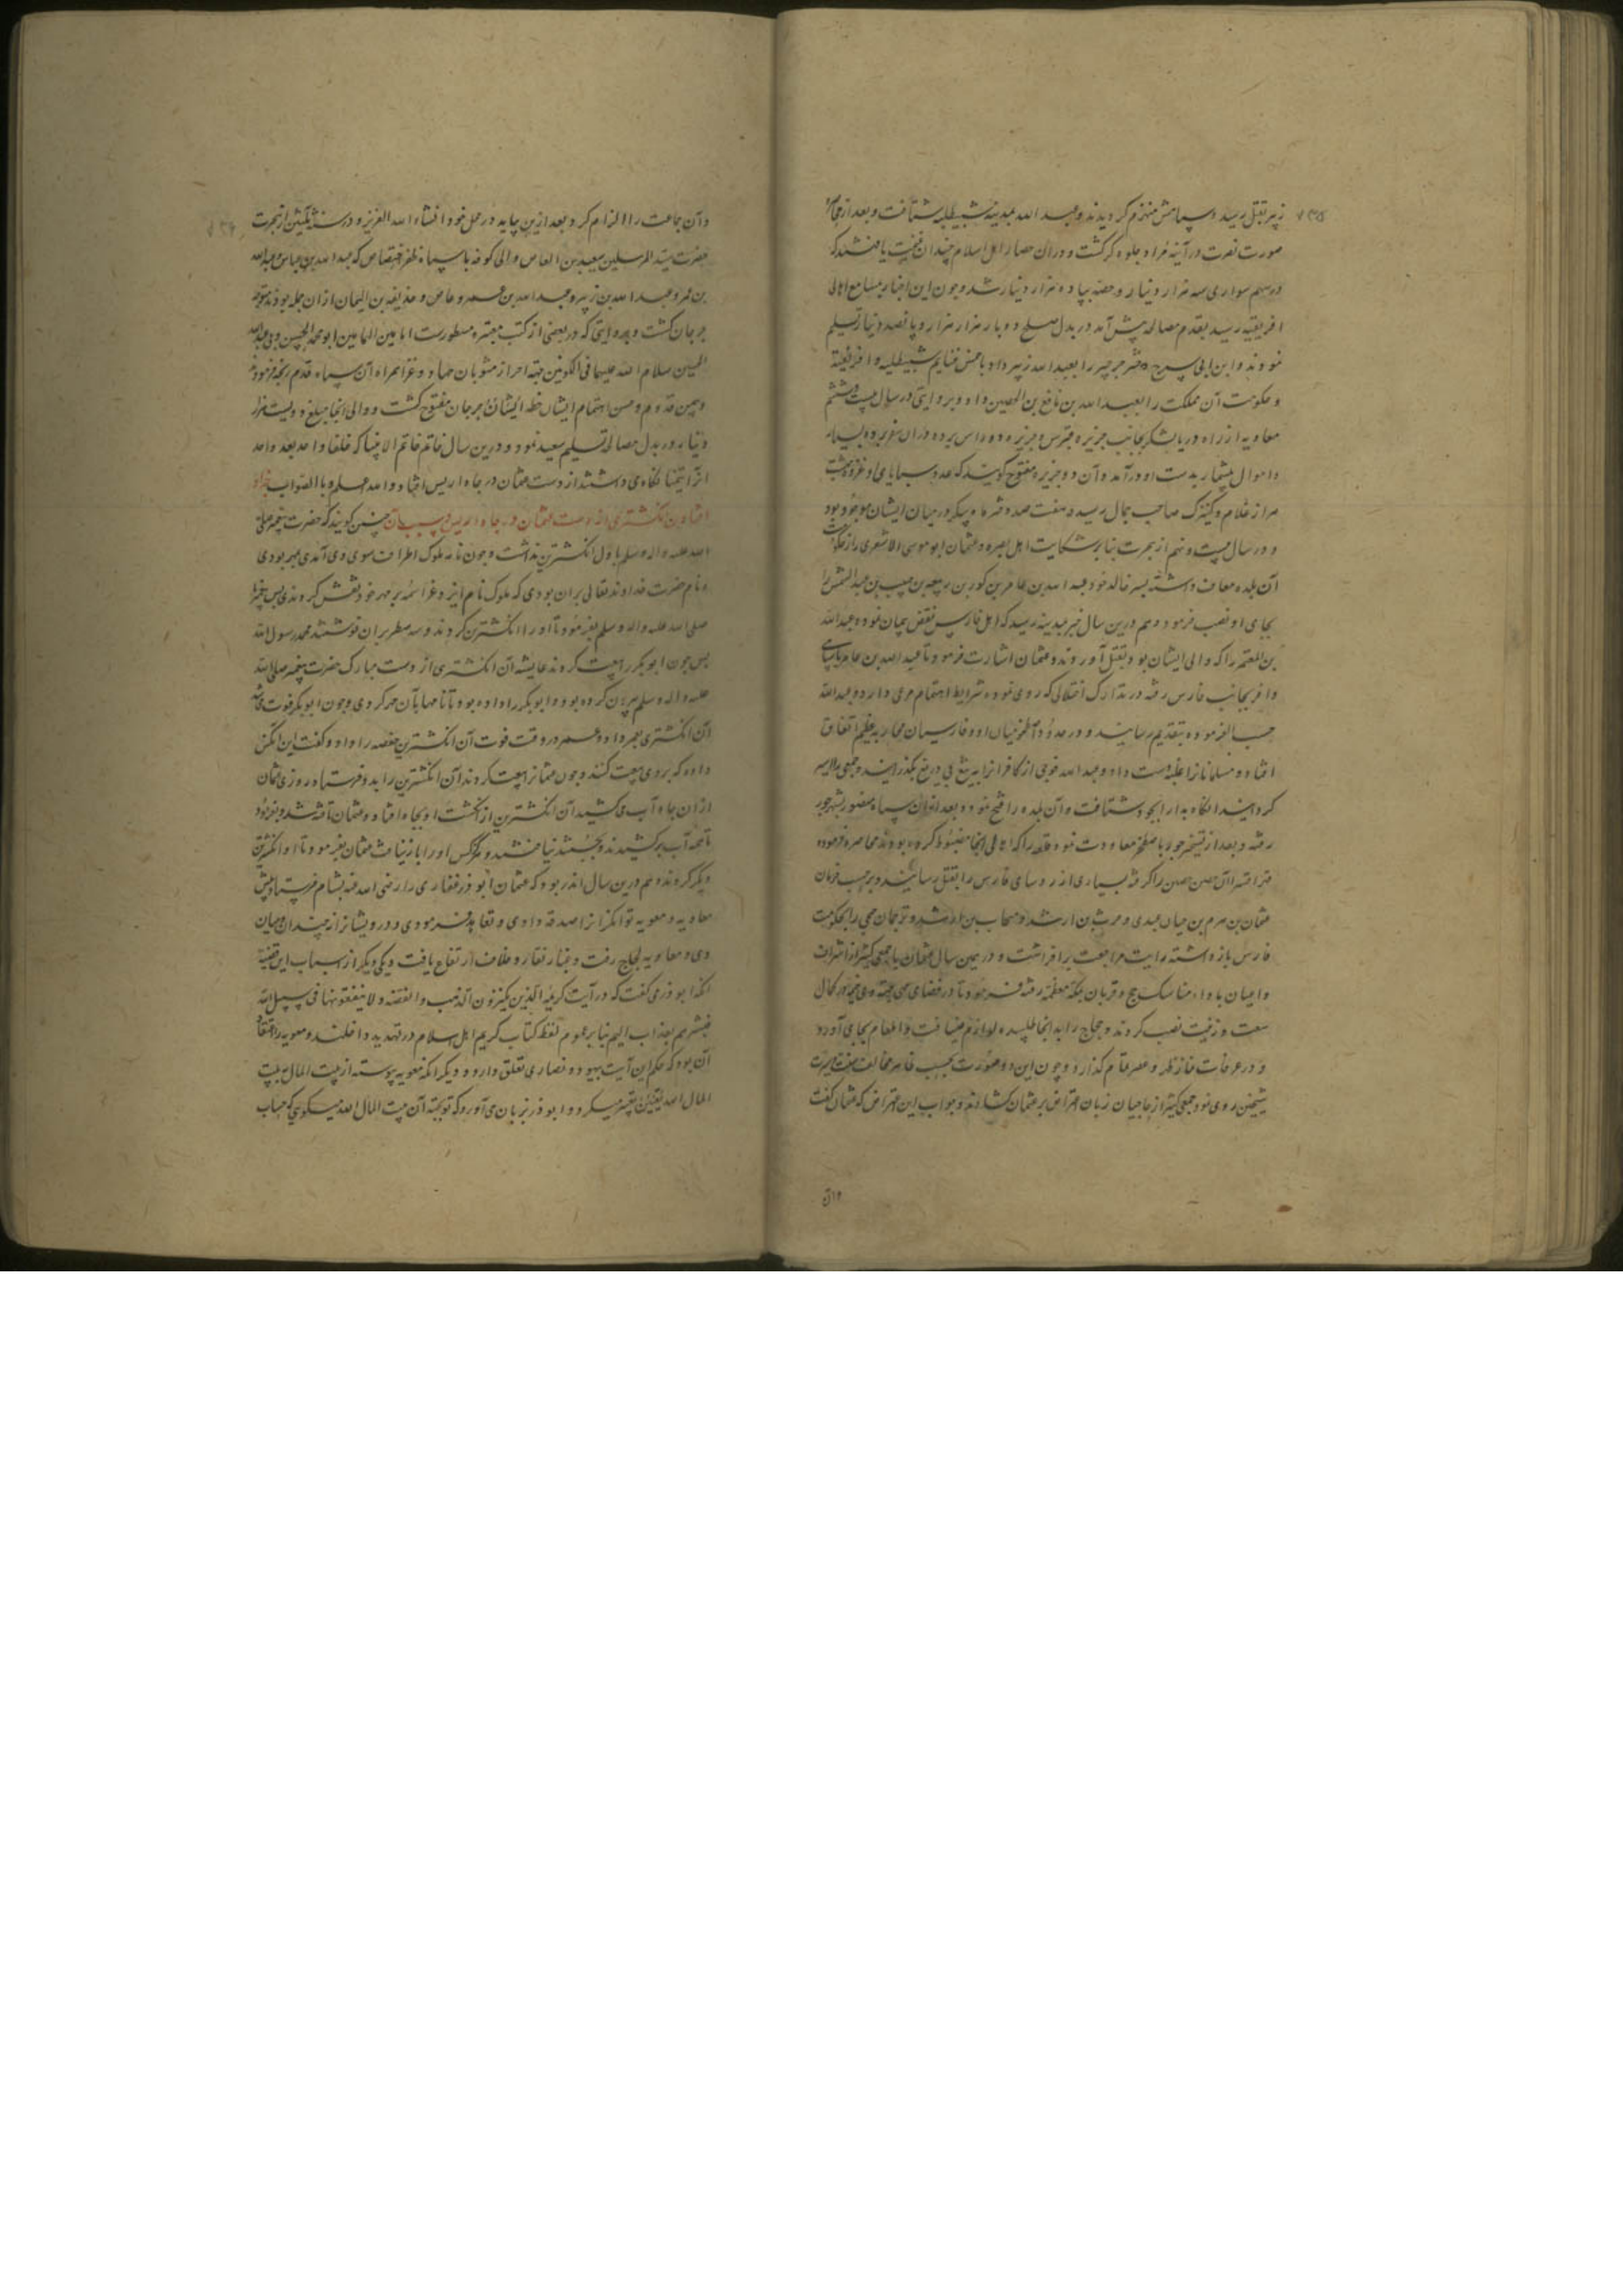 زبیر بقتل رسید و سپاهش منهزم گردیدند و عبد الله بمدینه سبیطله شتافت و بعد از
صورت نصرت در آینه مراد جلوه گر گشت و دران حصار اهل اسلام چندان غنیمت یافتند که
در سهم سواری سه هزار دینار و حصه پیاده هزار دینار شد و چون این اخبار بمسامع اهالی
افریقیه رسید بقدم مصالحه پیش آمد در بدل صلح دو بار هزار هزار و پانصد دینار تسلیم
نمودند و ابن ابی سرح دختر جرجیر را بعبد الله زبیر داد با خمس غنایم سبیطله و افریقیه
و حکومت آن مملکت را بعبد الله بن نافع بن الحصین داد و بروایتی در سال بیست و هشتم
معاویه از راه دریا لشکر بجانب جزیره قبرس و جزیره رودس برده و دران سفر برده بسیار
و اموال بیشمار بدست او در آمد و آن دو جزیره مفتوح گویند که عدد سبایای او
از غلام و کنیزک صاحب جمال رسید و هفت صد دختر ماه پیکر در میان ایشان موجود بود
و در سال بیست و نهم از هجرت بنا بر شکایت اهل بصره عثمان ابو موسی الاشعری را از حکومت
آن بلده معاف داشته پسر خاله خود عبد الله بن عامر بن کوز بن ربیعه بن حبیب بن عبد الشمس را
بجای او نصب فرمود و هم درین سال خبر بمدینه رسید که اهل فارس نقض پیمان نموده عبد الله
بن المعمر را که والی ایشان بود بقتل آوردند و عثمان اشارت فرمود تا عبد الله بن عامر با سپاهی
وافر بجانب فارس رفته در تدارک اختلالی که روی نموده شرایط اهتمام مرعی دارد و عبد الله
حسب الفرموده بتقدیم رسانید و در حدود اصطخر میان او و فارسیان محاربه عظیم اتفاق
افتاد و مسلمانانرا غلبه دست داد و عبد الله فوجی از کافرانرا به تیغ بی دریغ بگذرانید و جمعی را اسیر
گردانید انگاه بدارابجرد شتافت و آن بلده را فتح نموده بعد ازان سپاه منصور بشهر جور
رفته و بعد از تسخیر جور باصطخر معاودت نموده قلعه را که اهالی انجا مضبوط کرده بودند محاصره فرموده
آن حصن حصین را گرفته بسیاری از روسای فارس را بقتل رسانید و بر حسب فرمان
عثمان بن هرم بن حیان عبدی و را بحکومت
فارس باز داشته رایت مراجعت بر افراشت و در همین سال عثمان با جمعی کثیر از اشراف
و اعیان باداء مناسک حج و قربان بمکه معظمه رفته فرمود تا در فضای
سعت و زینت نصب کردند و حجاج را بد انجا طلبیده لوازم ضیافت و اطعام بجای آورد
و در عرفات نماز ظهر و عصر تمام گذارد و چون این دو صورت بحسب ظاهر مخالف سنت
شیخین روی نمود جمعی کثیر از حاجیان زبان اعتراض بر عثمان کشادند و جواب این اعتراض که عثمان گفت
و آن جماعت را الزام کرد بعد ازین بیاید در محل خود انشاء الله العزیز و در سنه ثلثین از هجرت
حضرت سید المرسلین سعید بن العاص والی کوفه با سپاه ظفر اختصاص که عبد الله بن عباس و عبد الله
بن عمر و عبد الله بن زبیر و عبد الله بن عمرو عاص و حذیفه بن الیمان از ان جمله بودند متوجه
جرجان گشت و بروایتی که در بعضی از کتب معتبره مسطورست امامین الهمامین ابو محمد الحسن و ابی عبد الله
الحسین سلام الله علیهما فی الکونین جهة احراز مثوبات جهاد و غزا همراه آن سپاه قدم رنجه فرمودند
و بیمن قدوم و حسن اهتمام ایشان خطه جرجان مفتوح گشت و والی انجا مبلغ دویست هزار
دینار در بدل مصالحه تسلیم سعید نمود و درین سال خاتم خاتم الانبیا که خلفا واحد بعد واحد
انرا تیمنا نگاه می داشتند از دست عثمان در چاه اریس افتاد و الله اعلم و با الصواب
افتادن انگشتری از دست عثمان در چاه اریس و سبب آن چنین گویند که حضرت پیغمبر صلی
الله علیه و اله و سلم باول انگشترین نداشت و چون نامه ملوک اطراف سوی وی آمدی بمهر بودی
و نام حضرت خداوند تعالی بران بودی که ملوک نام ایزد عز اسمه بر مهر خود نقش کردندی پس پیغمبر
صلی الله علیه و اله و سلم بفرمود تا او را انگشترین کردند و سه سطر بران نوشتند محمد رسول الله
پس چون ابو بکر را بیعت کردند عایشه آن انگشتری از دست مبارک حضرت پیغمبر صلی الله
علیه و اله و سلم بیرون کرده بود و ابو بکر را داده بود تا نامهابآن مهر کردی و چون ابو بکر فوت می شد
آن انگشتری بعمر داد و عمر در وقت فوت آن انگشترین حفصه را داد و گفت این انکس
داده که بروی بیعت کنند و چون عثمانرا بیعت کردند آن انگشترین را بدو فرستاد روزی عثمان
از ان چاه آب می کشید آن انگشترین از انگشت او بچاه افتاد و عثمان تافته شد و بفرمود
تا همه آب بر کشیدند و بجستند نیافتند و هرگز کس او را باز نیافت عثمان بفرمود تا او را انگشترین
دیگر کردند و هم درین سال اندر بود که عثمان ابو ذر غفاری را رضی الله عنه بشام فرستاد پیش
معاویه و معویه توانگرانرا صدقه دادی و تعاهد فرمودی و درویشانرا نه چندان و میان
وی و معاویه لجاج رفت و غبار نقار و خلاف ارتفاع یافت و یکی دیگر از اسباب این قضیه
انکه ابو ذر می گفت که در آیت کریمه الذین یکنزون الذهب والفضه ولا ینفقونها فی سبیل الله
فبشرهم بعذاب الیم بنا بر عموم لفظ کتاب کریم اهل اسلام در تهدید داخلند و معویه را اعتقاد
آن بود که حکم این آیت بیهود و نصاری تعلق دارد و دیگر انکه معویه پیوسته از بیت المال ببیت
المال الله تعبیر میکرد و ابو ذر بر زبان می آورد که تو بجهة آن بیت المال الله میگویی که حساب